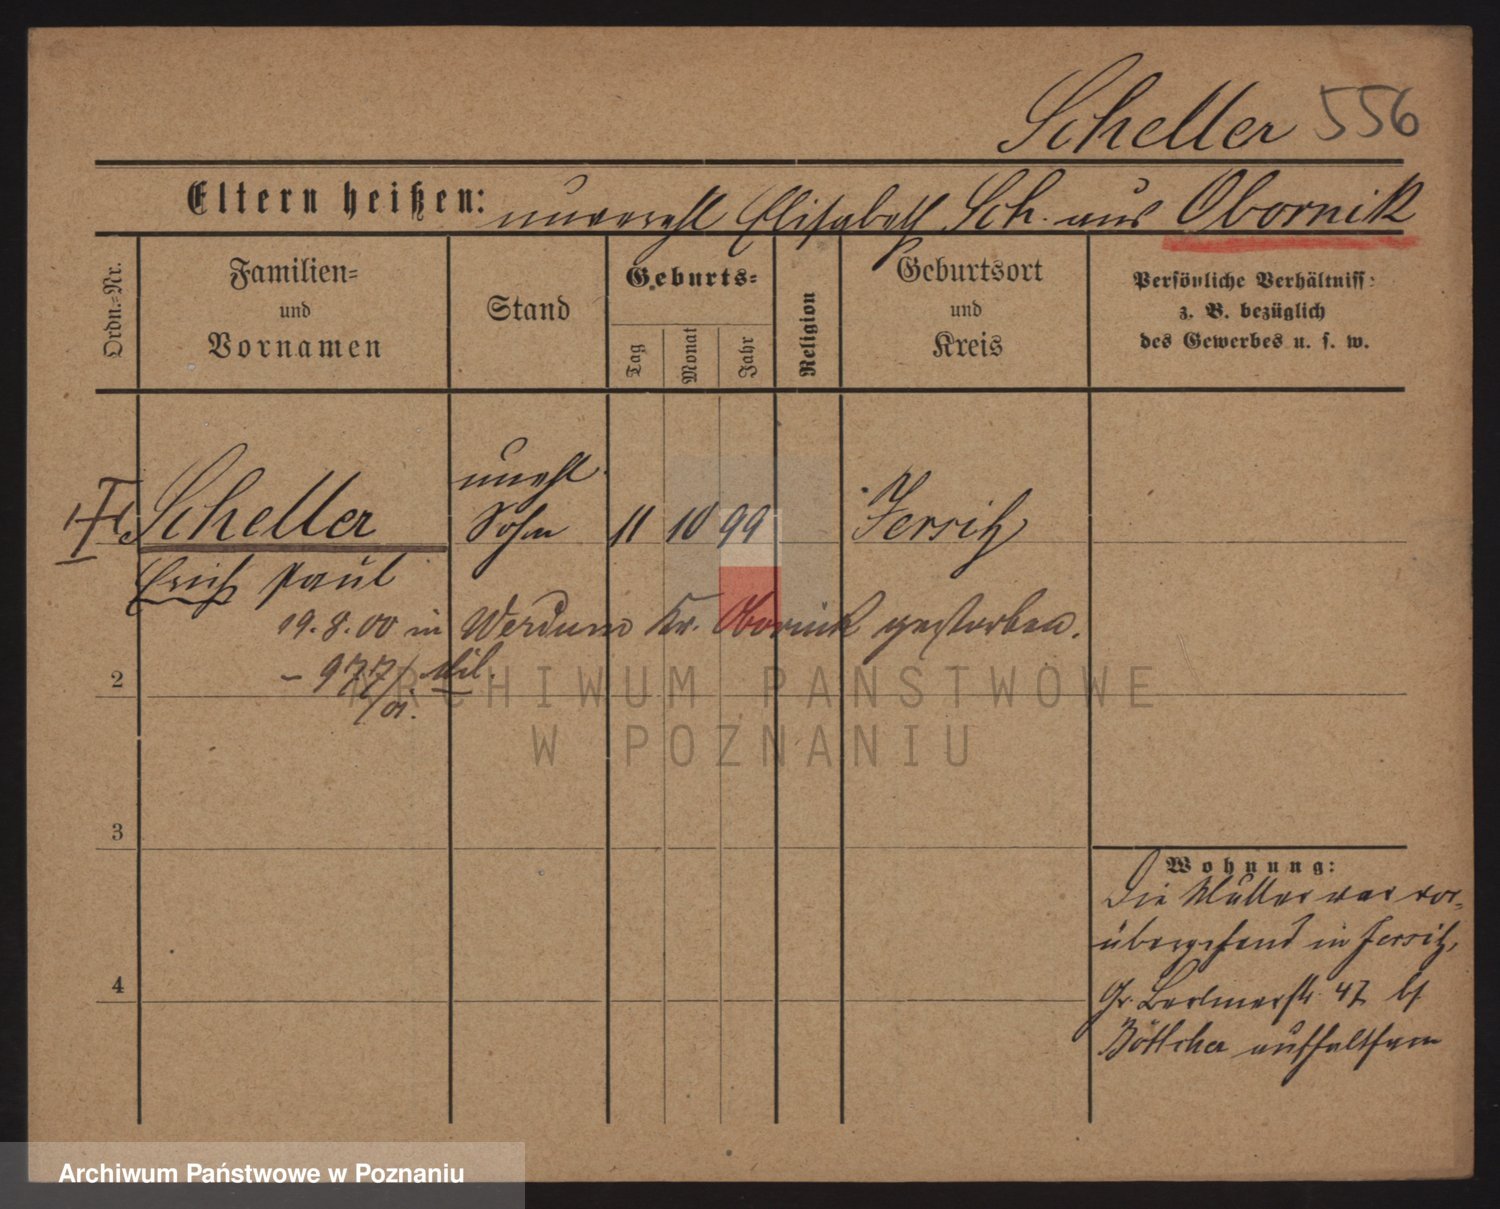 Scheller 556
Eltern heißen: unverehl Elisabeth Sch. aus Obornik
Ordn.-Nr.
Familien-
und
Vornamen
Stand
Geburts-
Tag
Monat
Jahr
Religion
Geburtsort
und
Kreis
Persönliche Verhältniss:
z. B. bezüglich
des Gewerbes u. s. w.
Scheller
unehl
Sohn
11 10 99
Jersitz
Erich Paul
19.8.00 in Werdum Kr. Obornik gestorben.
- 977/01. Mil.
2
3
4
Wohnung:
Die Mutter war vor-
übergehend in Jersitz,
Gr. Berlinerstr. 47 bf
Böttcher aufhaltsam
ARCHIWUM PAŃSTWOWE
W POZNANIU
Archiwum Państwowe w Poznaniu